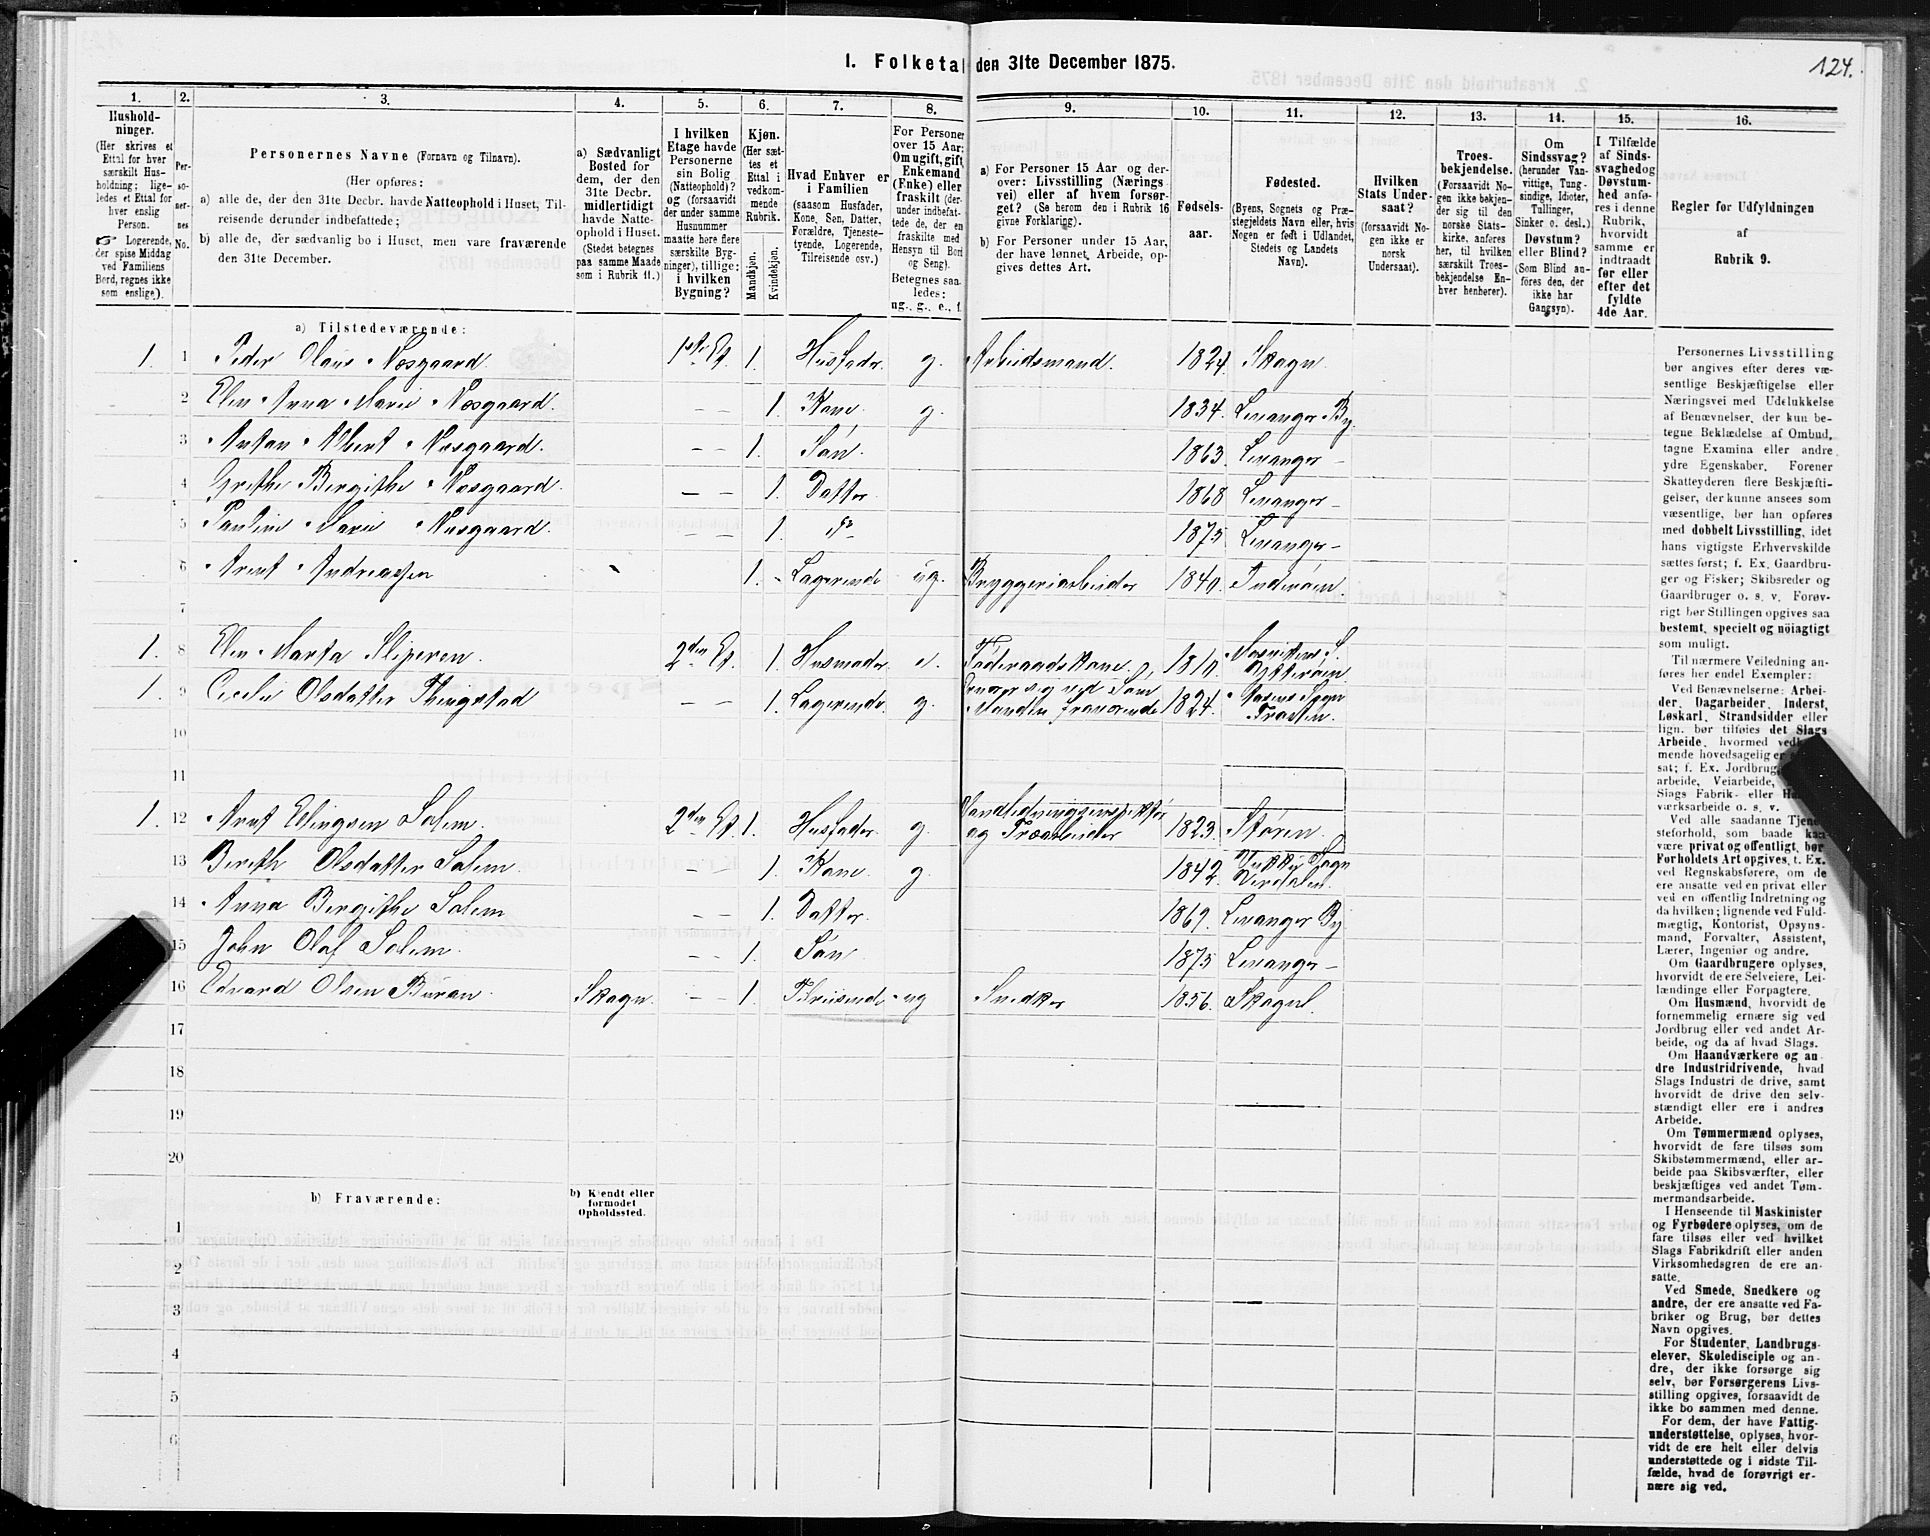 1. Folketal den 31te December 1875.
124.
1.
2.
3.
4.
5.
6.
7.
8.
9.
10.
11.
12.
13.
14.
15.
16.
Hushold-
ninger.
(Her skrives et
Ettal for hver
særskilt Hus-
holdning; lige-
ledes et Ettal for
hver enslig
Person.
☞ Logerende,
der spise Middag
ved Familiens
Bord, regnes ikke
som enslige).
Per-
so-
ner-
nes
No.
Personernes Navne (Fornavn og Tilnavn).
(Her opføres:
a) alle de, der den 31te Decbr. havde Natteophold i Huset, Til-
reisende derunder indbefattede;
b) alle de, der sædvanlig bo i Huset, men vare fraværende
den 31te December.
a) Sædvanligt
Bosted for
dem, der den
31te Decbr.
midlertidigt
havde Natte-
ophold i Huset.
(Stedet betegnes
paa samme Maade
som i Rubrik 11.)
I hvilken
Etage havde
Personerne
sin Bolig
(Natteophold)?
og (forsaavidt
der under samme
Husnummer
maatte høre flere
særskilte Byg-
ninger), tillige:
i hvilken
Bygning?
Kjøn.
(Her sæt-
tes et
Ettal i
vedkom-
mende
Rubrik.
Mandkjøn.
Kvindekjøn.
Hvad Enhver er
i Familien
(saasom Husfader,
Kone, Søn, Datter,
Forældre, Tjeneste-
tyende, Logerende,
Tilreisende osv.)
For Personer
over 15 Aar:
Om ugift, gift,
Enkemand
(Enke) eller
fraskilt (der-
under indbefat-
tede de, der en
fraskilte med
Hensyn til Bord
og Seng).
Betegnes saa-
ledes:
ug., g., e., f.
a) For Personer 15 Aar og der-
over: Livsstilling (Nærings-
vei) eller af hvem forsør-
get? (Se herom den i Rubrik 16
givne Forklaring).
b) For Personer under 15 Aar,
der have lønnet Arbeide, op-
gives dettes Art.
Fødsels-
aar.
Fødested.
(Byens, Sognets og Præ-
stegjeldets Navn eller, hvis
Nogen er født i Udlandet,
Stedets og Landets
Navn).
Hvilken
Stats Under-
saat?
(forsaavidt No-
gen ikke er
norsk
Undersaat).
Troes-
bekjendelse.
(Forsaavidt No-
gen ikke bekjen-
der sig til den
norske Stats-
kirke, anføres
her, til hvilken
særskilt Troes-
bekjendelse En-
hver henhører).
Om
Sindssvag?
(herunder Van-
vittige, Tung-
sindige, Idioter,
Tullinger,
Sinker o. desl.)
Døvstum?
eller Blind?
(Som Blind an-
føres den, der
ikke har
Gangsyn).
I Tilfælde
af Sinds-
svaghed og
Døvstum-
hed anfø-
res i denne
Rubrik,
hvorvidt
samme er
indtraadt
før eller
efter det
fyldte
4de Aar.
Regler for Udfyldningen
af
Rubrik 9.
a) Tilstedeværende:
1. 1 Peder Olaus Næsgaard 1ste Et. 1. Husfader g. Arbeidsmand. 1824. Skogn
2 Elen Anna Marie Næsgaard. – – 1. Kone g. 1834. Levanger By
3 Anton Albert Næsgaard. – – 1. Søn. 1863. Levanger –
4 Grethe Bergithe Næsgaard. – – 1. Datter 1868 Levanger –
5 Pauline Marie Næsgaard. – – 1. 1875 Levanger –
6 Arent Andreassen 1. Logerende ug. Bryggeriarbeider 1840. Inderøen.
7
1. 8 Elen Marta Sliperen. 2den Et. 1. Husmoder e. Føderaadskone 1810. Ytterøen
1. 9 Cecelie Olsdatter Thingstad – – 1. Logerende g. Manden fraværende 1824. Frosten.
10
11
1. 12 Arnt Ellingsen Salem. 2den Et. 1. Husfader g. Vandledningsinspektør
og Træarbeider 1823. Støren.
13 Bereth Olsdatter Salem – – 1. Kone g. 1842. Vukku Sogn
Verdalen.
14 Anna Bergithe Salem – – 1. Datter. 1869. Levanger By
15 John Olaf Salem. – – 1. Søn 1875 Levanger –
16 Edvard Olsen Buran. Skogn. – – 1. Tilreisende ug Snedker 1856. Skogn.
17
18
19
20
b) Fraværende:
b) Kjendt eller
formodet
Opholdssted.
1
2
3
4
5
6
Personernes Livsstilling
bør angives efter deres væ-
sentlige Beskjæftigelse eller
Næringsvei med Udelukkelse
af Benævnelser, der kun be-
tegne Beklædelse af Ombud,
tagne Examina eller andre
ydre Egenskaber. Forener
Skatteyderen flere Beskjæfti-
gelser, der kunne ansees som
væsentlige, bør han opføres
med dobbelt Livsstilling, idet
hans vigtigste Erhvervskilde
sættes først; f. Ex. Gaardbru-
ger og Fisker; Skibsreder og
Gaardbruger o. s. v. Forøv-
rigt bør Stillingen opgives saa
bestemt, specielt og nöiagtigt
som muligt.
Til nærmere Veiledning an-
føres her endel Exempler:
Ved Benævnelserne: Arbei-
der, Dagarbeider, Inderst,
Løskarl, Strandsidder eller
lign. bør tilføies det Slags
Arbeide, hvormed
mende hovedsagelig er
sat; f. Ex. Jordbrug,
arbeide, Veiarbeide,
Slags Fabrik- eller
værksarbeide o. s. v.
Ved alle saadanne Tjene-
steforhold, som baade kan
være privat og offentligt, bør
Forholdets Art opgives, t. Ex.
ved Regnskabsførere, om de
ere ansatte ved en privat eller
ved en offentlig Indretning og
da hvilken; lignende ved Fuld-
mægtig, Kontorist, Opsyns-
mand, Forvalter, Assistent,
Lærer, Ingeniør og andre.
Om Gaardbrugere oplyses,
hvorvidt de ere Selveiere, Lei-
lændinge eller Forpagtere.
Om Husmænd, hvorvidt de
fornemmelig ernære sig ved
Jordbrug eller ved andet Ar-
beide, og da af hvad Slags.
Om Haandværkere og an-
dre Industridrivende, hvad
Slags Industri de drive, samt
hvorvidt de drive den selv-
stændigt eller ere i andres
Arbeide.
Om Tømmermænd oplyses,
hvorvidt de fare tilsøs som
Skibstømmermænd, eller ar-
beide paa Skibsværfter, eller
beskjæftiges ved andet Tøm-
mermandsarbeide.
I Henseende til Maskinister
og Fyrbødere oplyses, om de
fare tilsøs eller ved hvilket
Slags Fabrikdrift eller anden
Virksomhedsgren de ere an-
satte.
Ved Smede, Snedkere og
andre, der ere ansatte ved Fa-
briker og Brug, bør dettes
Navn opgives.
For Studenter, Landbrugs-
elever, Skoledisciple og an-
dre, der ikke forsørge sig
selv, bør Forsørgerens Livs-
stilling opgives, forsaavidt de
ikke bo sammen med denne.
For dem, der have Fattig-
understøttelse, oplyses, hvor-
vidt de ere helt eller delvis
understøttede og i sidste Til-
fælde, hvad de forøvrigt er-
nære sig ved.